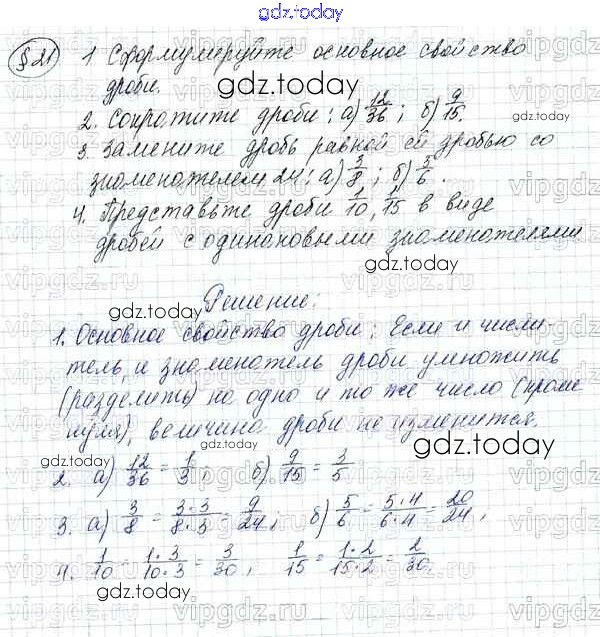 gdz.today
§21 1 Сформулируйте основное свойство
дроби.
gdz.today
2. Сократите дроби: а) 12/36; б) 9/15.
3. Замените дробь равной ей дробью со
знаменателем 24: а) 3/8; б) 5/6.
4. Представьте дроби 1/10, 1/15 в виде
дробей с одинаковыми знаменателями
gdz.today
gdz.today
Решение:
1. Основное свойство дроби: Если и числи-
тель, и знаменатель дроби умножить
(разделить) на одно и то же число (кроме
нуля), величина дроби не изменится.
gdz.today
gdz.today
2. а) 12/36 = 1/3; б) 9/15 = 3/5.
3. а) 3/8 = 3·3/8·3 = 9/24; б) 5/6 = 5·4/6·4 = 20/24;
4. 1/10 = 1·3/10·3 = 3/30, 1/15 = 1·2/15·2 = 2/30.
gdz.today
gdz.today
vipgdz.ru